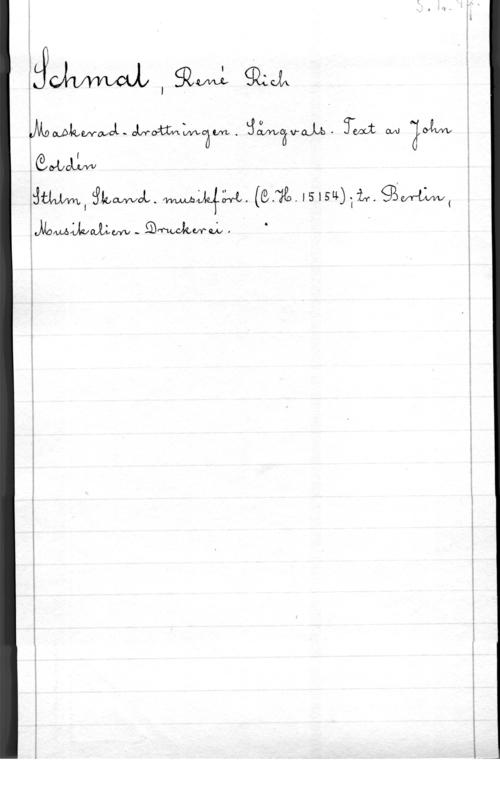 Schmal, René Rich
Maskerad-drottningen. Sångvals. Text av John
Coldén
Sthlm, Skand. musikförl. (C.H. 15154); tr. Berlin,
Musikalien-Druckerei.